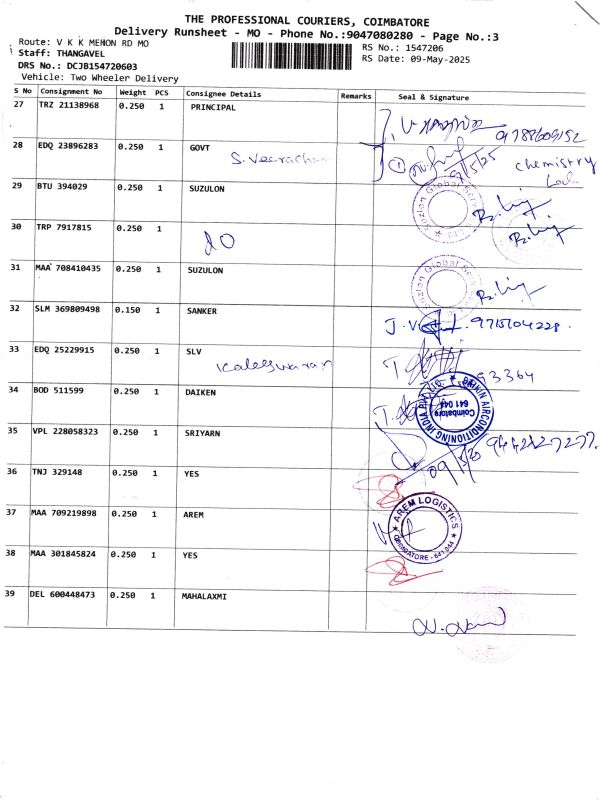 THE PROFESSIONAL COURIERS, COIMBATORE
Delivery Runsheet - MO - Phone No.:9047080280 - Page No.:3
Route: V K K MENON RD MO
RS No.: 1547206
Staff: THANGAVEL
RS Date: 09-May-2025
DRS No.: DCJB154720603
Vehicle: Two Wheeler Delivery
S No Consignment No Weight PCS Consignee Details Remarks Seal & Signature
27 TRZ 21138968 0.250 1 PRINCIPAL
9788609152
28 EDQ 23896283 0.250 1 GOVT
1
9/5/25
chemistry
29 BTU 394029 0.250 1 SUZULON
Suzlon Global
30 TRP 7917815 0.250 1
31 MAA 708410435 0.250 1 SUZULON
Suzlon Global
32 SLM 369809498 0.150 1 SANKER
9715104228
33 EDQ 25229915 0.250 1 SLV
Kaleeswaran
93364
34 BOD 511599 0.250 1 DAIKEN
DAIKIN AIRCONDITIONING INDIA PVT LTD
Coimbatore
641 045
35 VPL 228058323 0.250 1 SRIYARN
36 TNJ 329148 0.250 1 YES
37 MAA 709219898 0.250 1 AREM
AREM LOGISTICS
COIMBATORE - 641 044
38 MAA 301845824 0.250 1 YES
39 DEL 600448473 0.250 1 MAHALAXMI